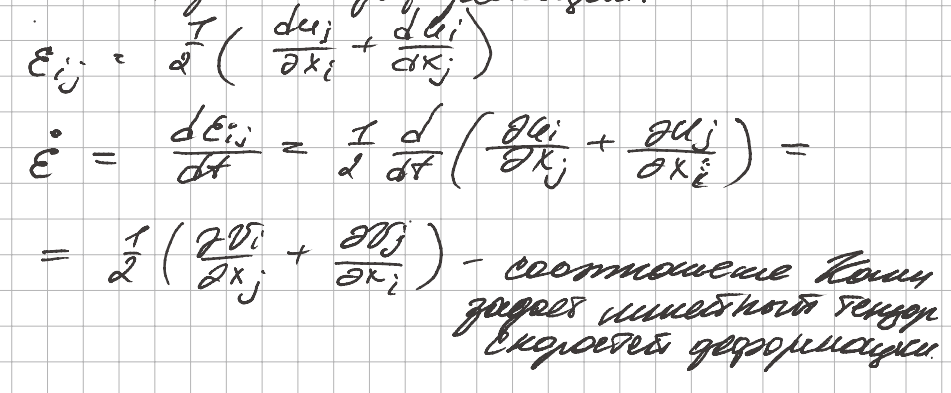 ε_ij = 1/2 ( du_j/∂x_i + du_i/dx_j )
ε̇ = dε_ij/dt = 1/2 d/dt ( ∂u_i/∂x_j + ∂u_j/∂x_i ) =
= 1/2 ( ∂v_i/∂x_j + ∂v_j/∂x_i ) – соотношение Коши
задает линейный тензор
скоростей деформации.